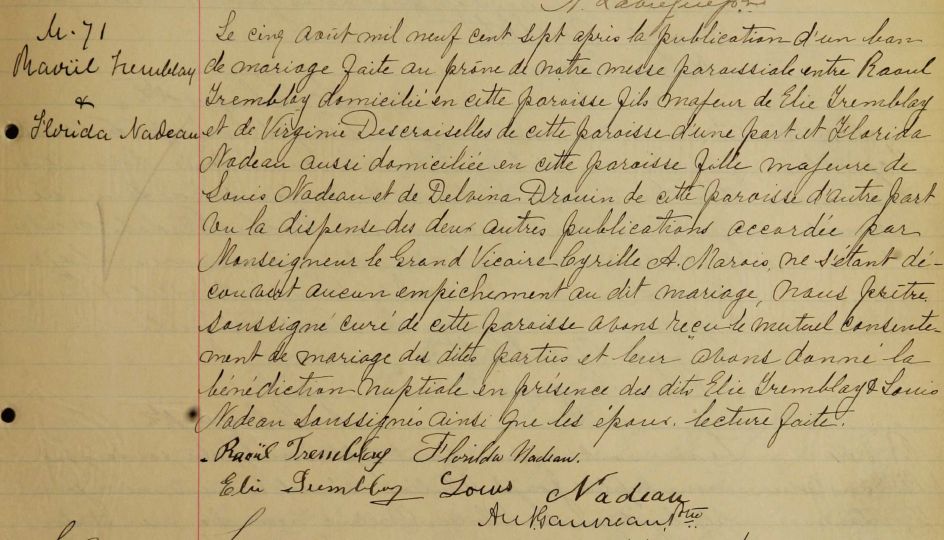 M. 71
Raoül Tremblay
&
Florida Nadeau
Le cinq août mil neuf cent sept après la publication d'un ban
de mariage faite au prône de notre messe paroissiale entre Raoul
Tremblay domicilié en cette paroisse fils majeur de Elie Tremblay
et de Virginie Descroiselles de cette paroisse d'une part et Florida
Nadeau aussi domiciliée en cette paroisse fille majeure de
Louis Nadeau et de Delvina Drouin de cette paroisse d'autre part
vu la dispense des deux autres publications accordée par
Monseigneur le Grand Vicaire Cyrille A. Marois, ne s'étant dé-
couvert aucun empichement au dit mariage, nous prêtre
soussigné curé de cette paroisse avons reçu le mutuel consente-
ment de mariage des dites parties et leur avons donné la
bénédiction nuptiale en présence des dits Elie Tremblay & Louis
Nadeau soussignés ainsi que les époux. lecture faite.
Raoül Tremblay Florilda Nadeau.
Elie Tremblay Louis Nadeau
Ptre